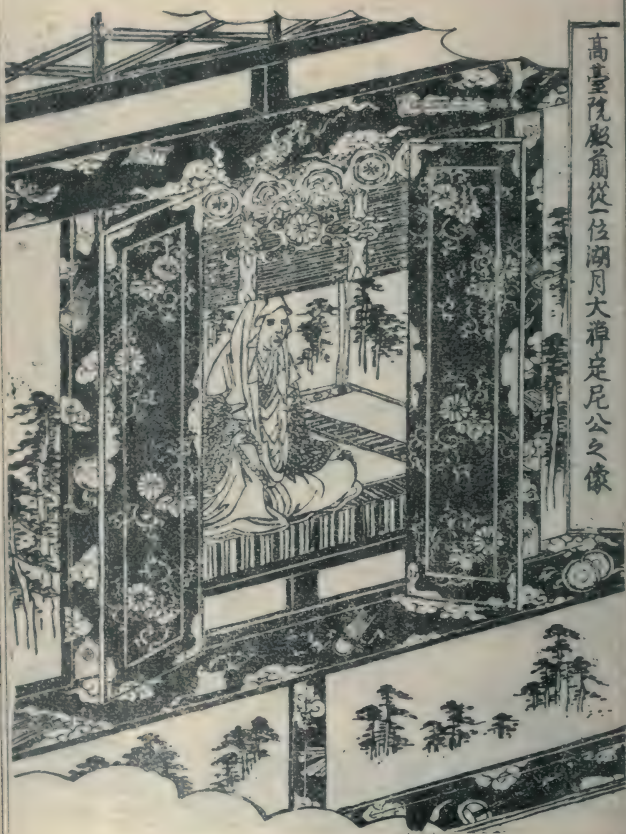 高臺院殿前從一位湖月大禅定尼公之像